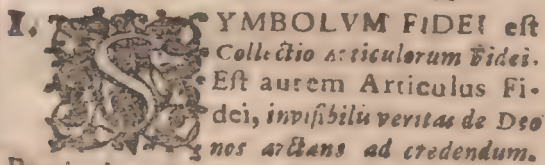 I. SYMBOLVM FIDEI eſt
Collectio articulorum Fidei.
Eſt autem Articulus Fi-
dei, inviſibilis veritas de Deo
nos arctans ad credendum.